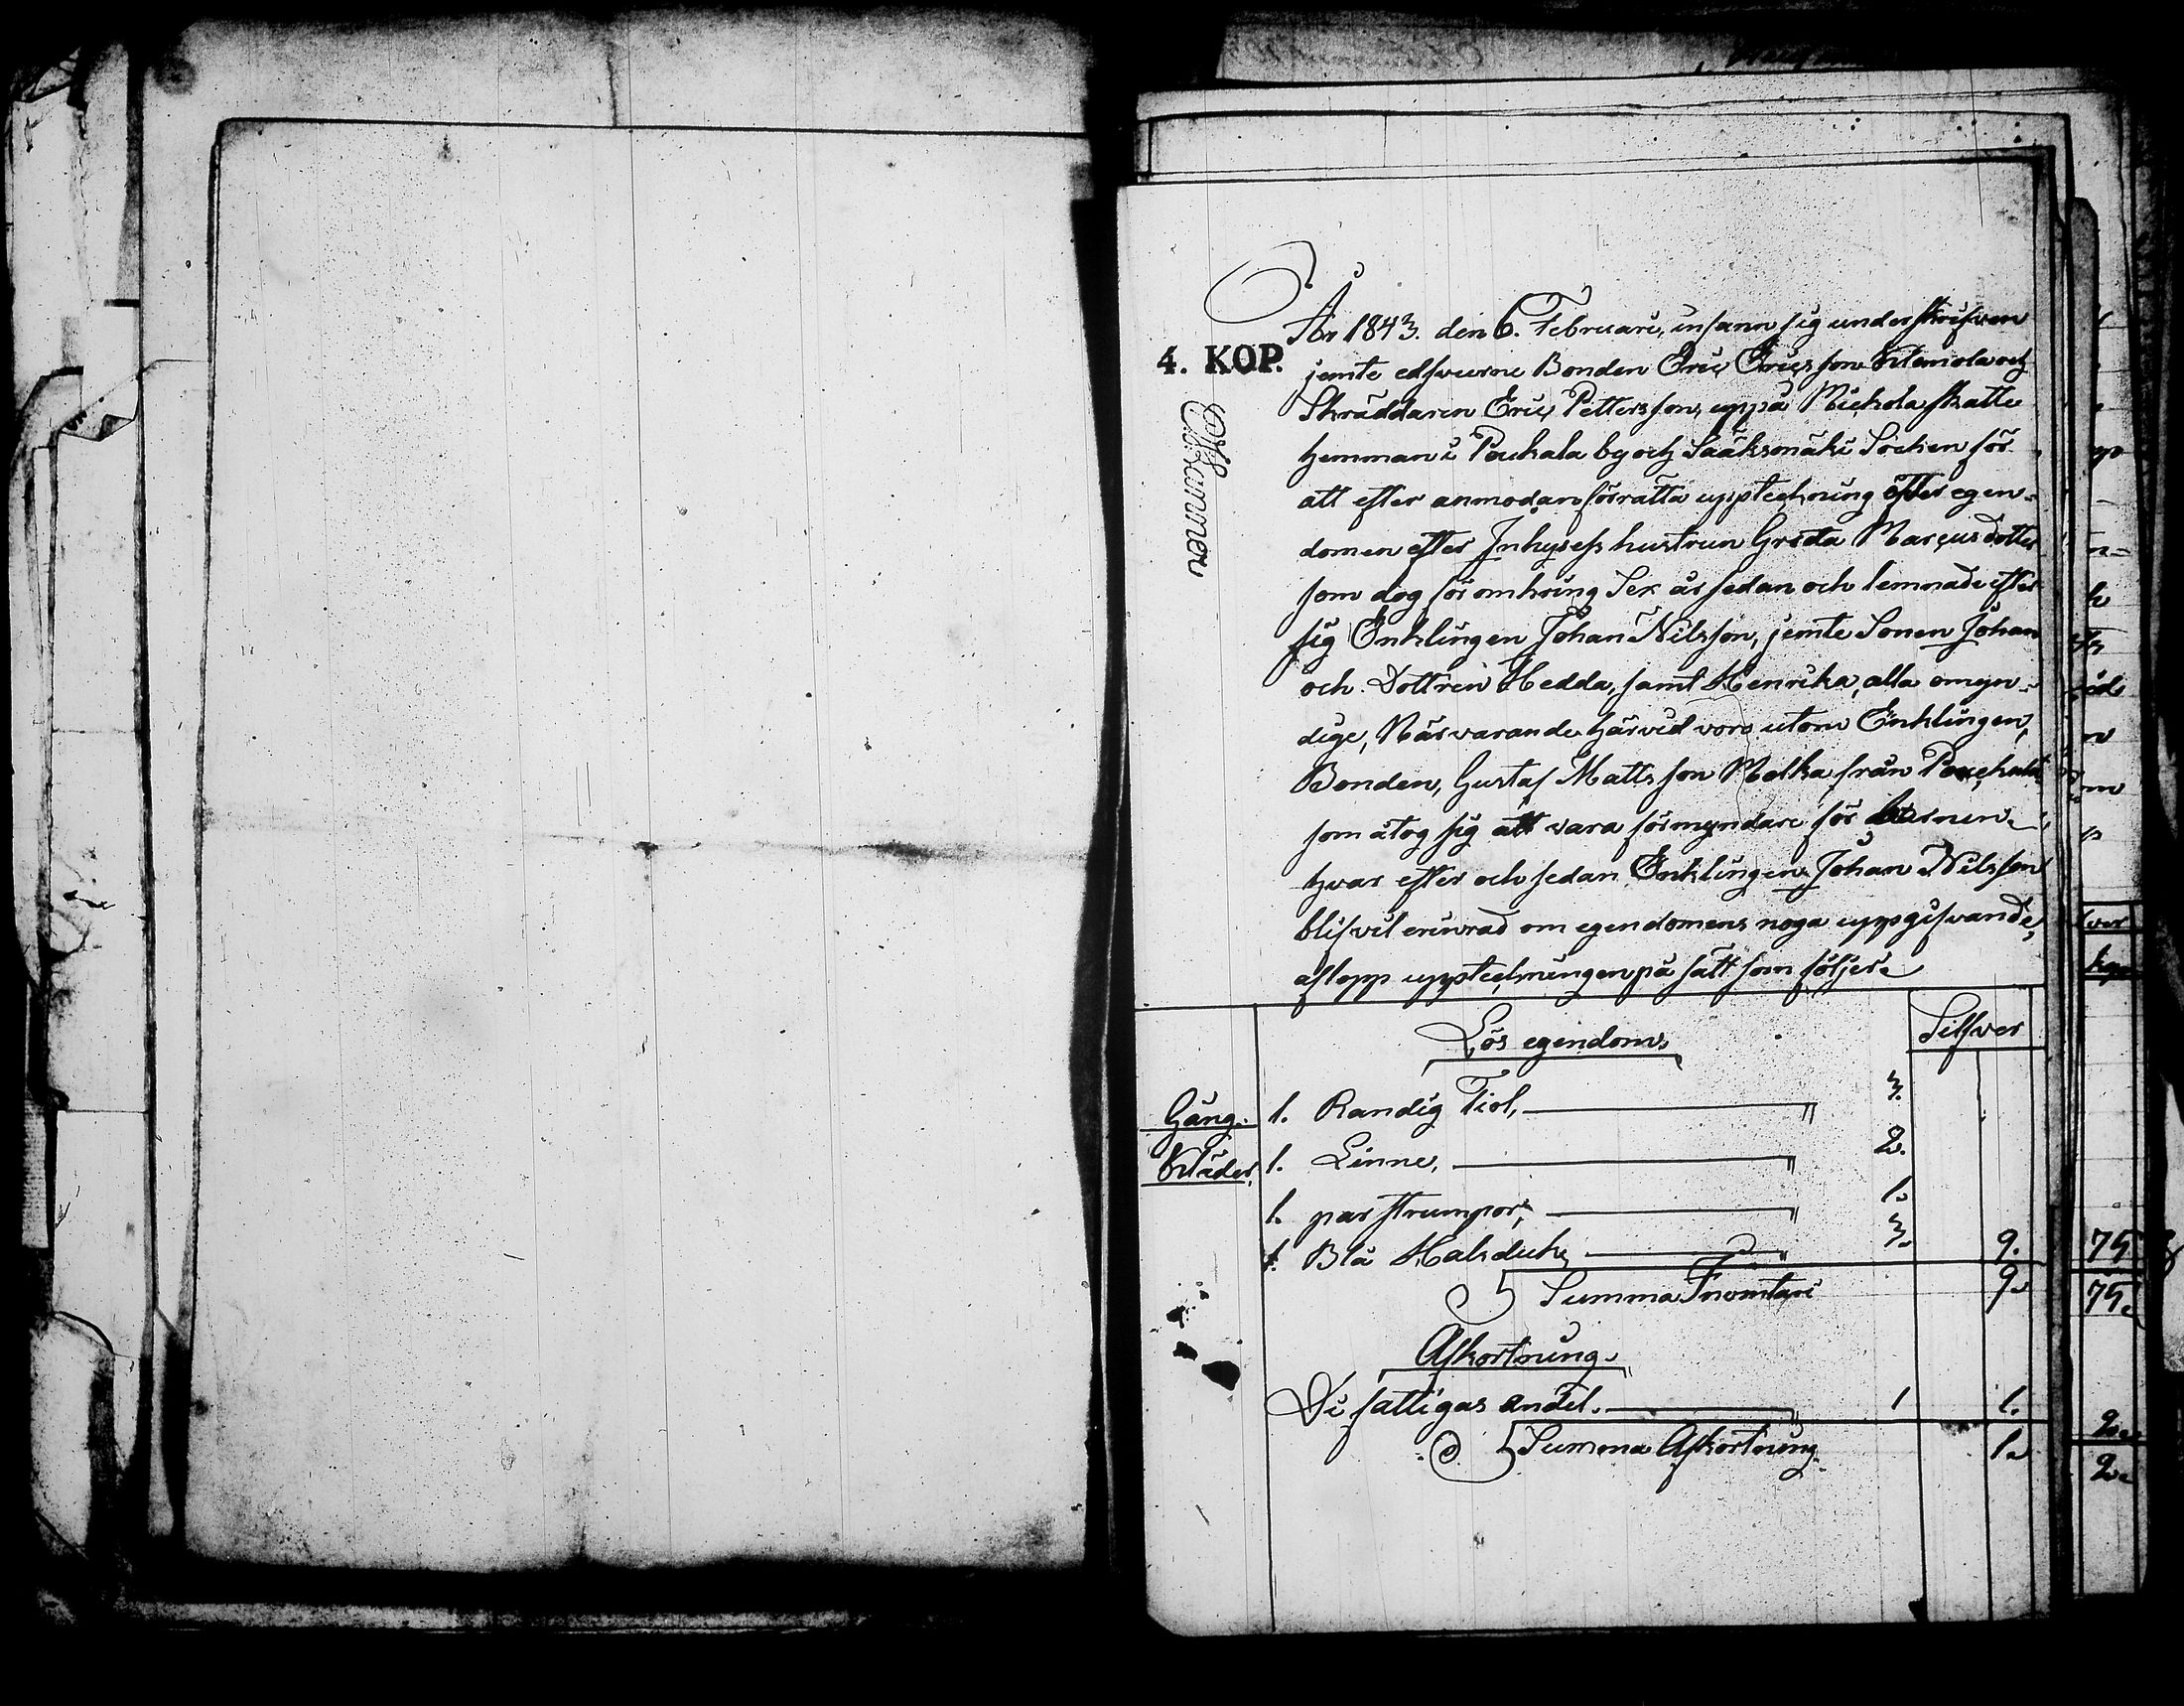 År 1843. den 6. Februari, infann sig underskrifven
4. KOP.
jemte edsvurne Bonden Eric Ericsson Klemola och
Skräddaren Eric Pettersson, uppå Mickola skatte
hemman i Pouhala by och Sääksmäki Socken för
att efter anmodan förrätta uppteckning öfver egen-
domen efter Inhyses hustrun Greta Marcusdotter
som dog för omkring Sex år sedan och lemnade efter
sig Enklingen Johan Nilsson, jemte Sonen Johan
och Döttren Hedda, samt Henrika, alla omyn-
dige, Närvarande härvid voro utom Enklingen,
Bonden, Gustaf Mattsson Molka från Pouhala
som åtog sig att vara förmyndare för barnen
hvar efter och sedan Enklingen Johan Nilsson
blifvit erinrad om egendomens noga uppgifvande,
aflopp uppteckningen på sätt som följer.
Lös egendom,
Silfver
Gång. 1. Randig Tiol, 3.
Kläder, 1. Linne, 2.
1. par strumpor, 1.
1. Blå Halsduk, 3. 9.
Summa Inventari 9.
Afkortning.
De fattigas andel. 1 1.
Summa Afkortning 1.
ver
75
75.
2.
2.